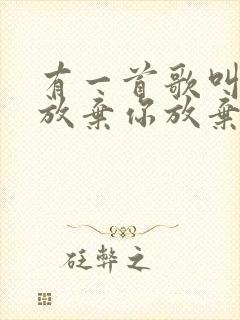 有一首歌叫
放弃你放弃
砭弊之